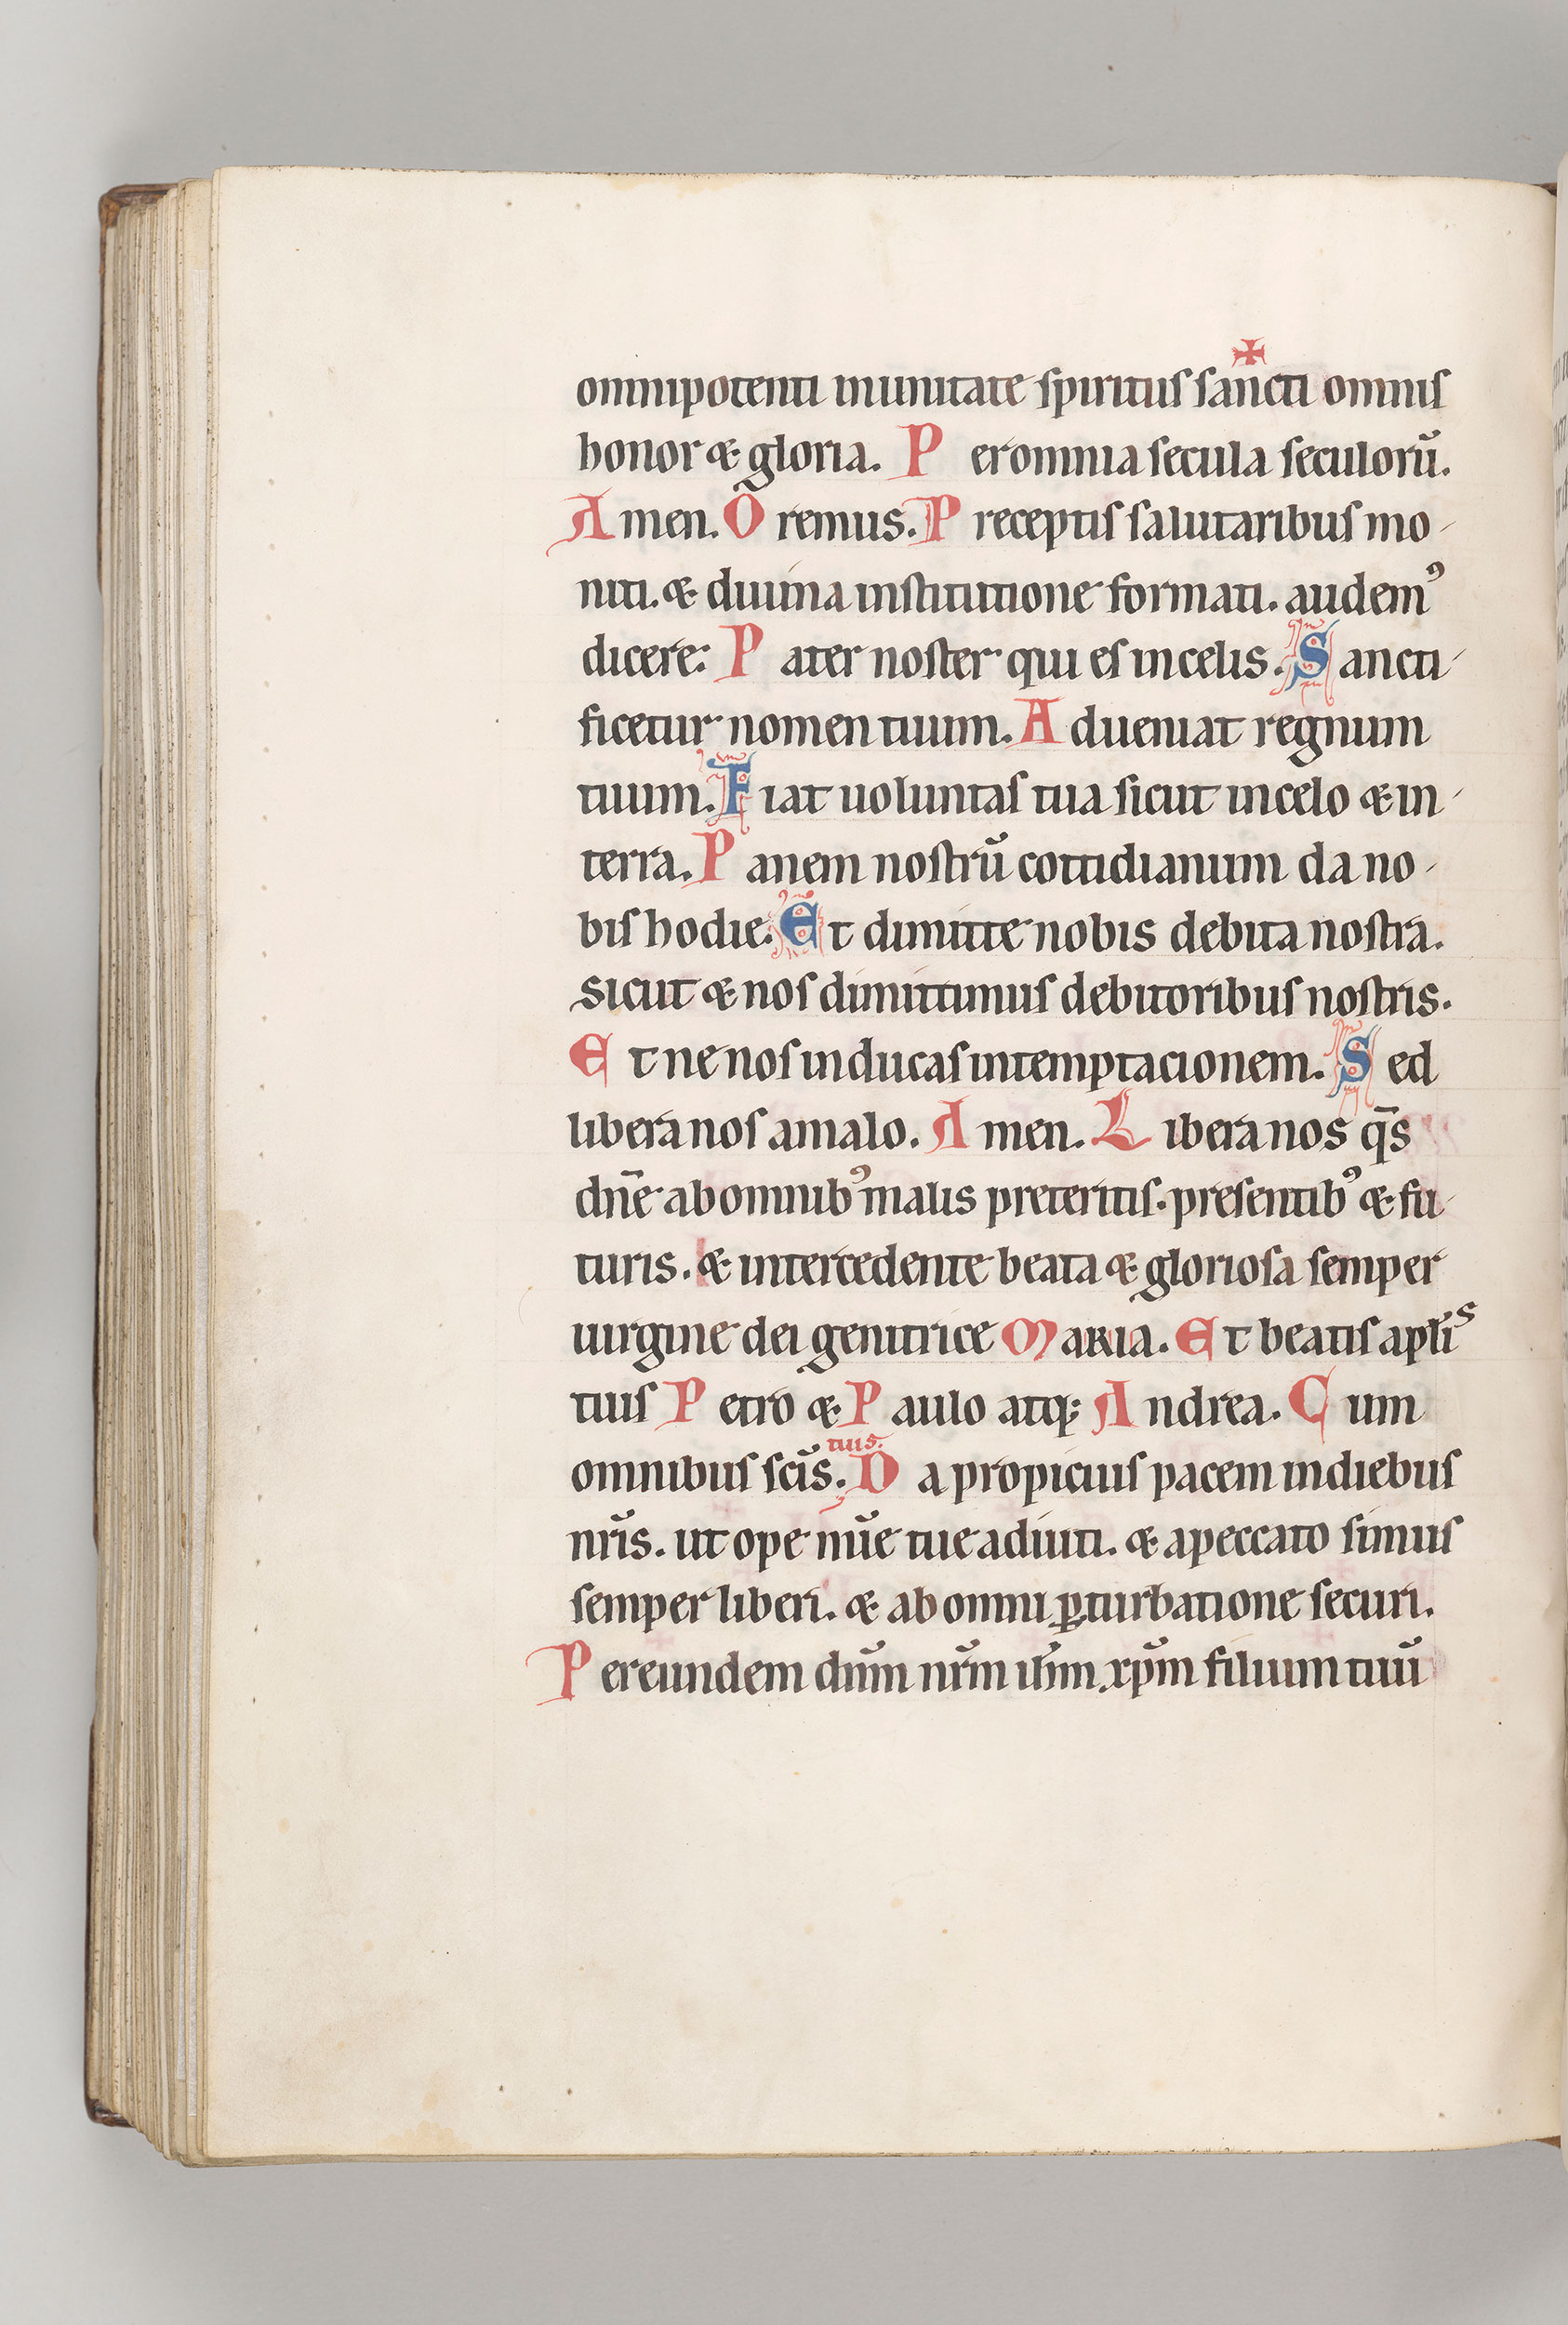 ✠
omnipotenti inunitate spiritus sancti omnis
honor & gloria. Per omnia secula seculorū.
Amen. Oremus. Preceptis salutaribus mo-
niti. & diuina institutione formati. audemꝰ
dicere: Pater noster qui es in celis. Sancti-
ficetur nomen tuum. Adueniat regnum
tuum. Fiat uoluntas tua sicut in celo & in-
terra. Panem nostrū cottidianum da no-
bis hodie. Et dimitte nobis debita nostra.
sicut & nos dimittimus debitoribus nostris.
Et ne nos inducas in temptacionem. Sed
libera nos a malo. Amen. Libera nos q̄s
dn̄e ab omnibꝰ malis preteritis. presentibꝰ & fu-
turis. & intercedente beata & gloriosa semper
uirgine dei genitrice Maria. Et beatis apl̄is
tuis Petro & Paulo atq; Andrea. Cum
tuis.
omnibus sc̄is. Da propicius pacem in diebus
nr̄is. ut ope mīe tue adiuti. & a peccato simus
semper liberi. & ab omni ꝑturbatione securi.
Per eundem dn̄m nr̄m ih̄m xp̄m filium tuū